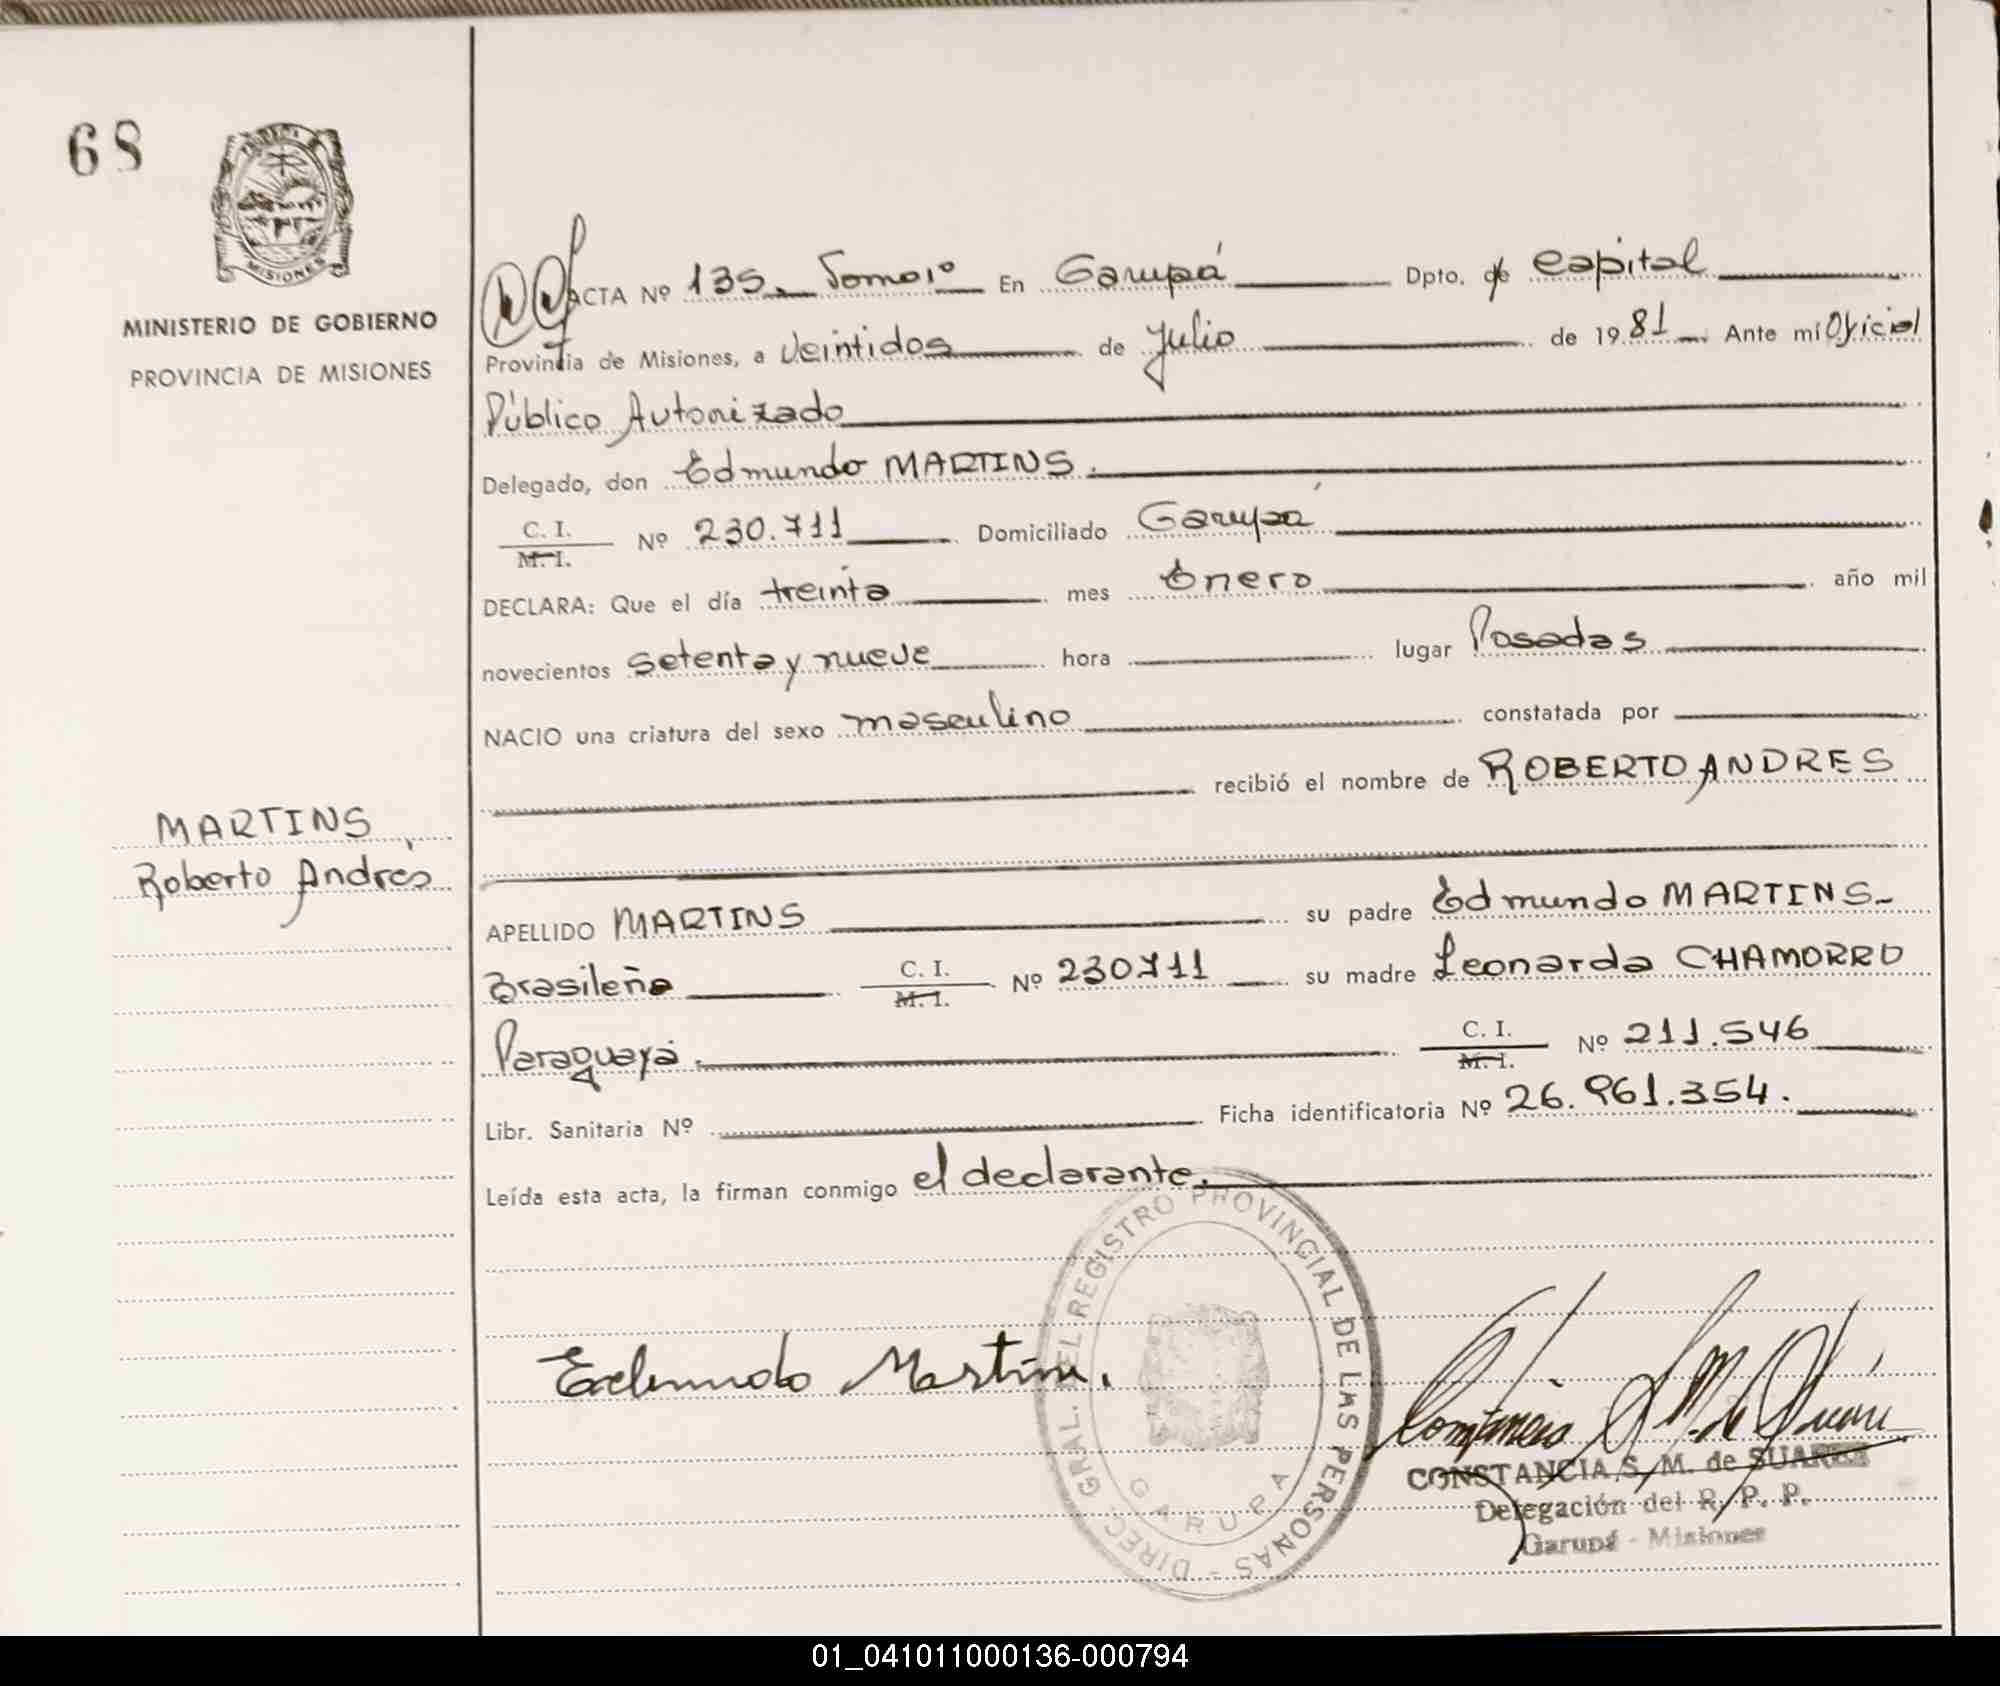 68
MISIONES
MINISTERIO DE GOBIERNO
PROVINCIA DE MISIONES
MARTINS
Roberto Andrés
ACTA Nº 135. Tomo 1º En Garupá Dpto. de Capital
Provincia de Misiones, a Veintidos de Julio de 19 81 Ante mi Oficial
Público Autorizado
Delegado, don Edmundo MARTINS.
C. I.
M. I. Nº 230.711 Domiciliado Garupá
DECLARA: Que el día treinta mes Enero año mil
novecientos setenta y nueve hora lugar Posadas
NACIO una criatura del sexo masculino constatada por
recibió el nombre de ROBERTO ANDRES
APELLIDO MARTINS su padre Edmundo MARTINS
Brasileña C. I. M. I. Nº 230711 su madre Leonarda CHAMORRO
Paraguaya. C. I. M. I. Nº 211.546
Libr. Sanitaria Nº Ficha identificatoria Nº 26.961.354.
Leída esta acta, la firman conmigo el declarante.
DIREC. GRAL. DEL REGISTRO PROVINCIAL DE LAS PERSONAS -
GARUPA
Edmundo Martins.
CONSTANCIA S. M. de SUAREZ
Delegación del R. P. P.
Garupá - Misiones
01_041011000136-000794